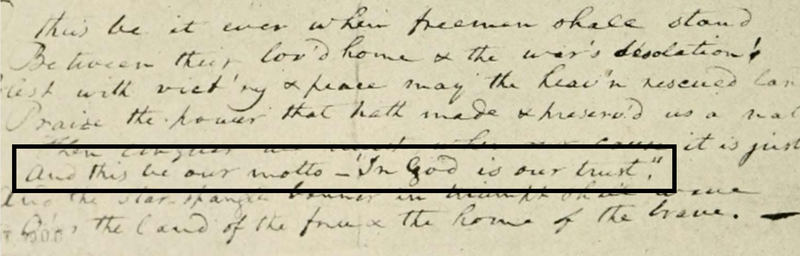 thus be it ever when freemen shall stand
Between their lov'd home & the war's desolation!
Blest with vict'ry & peace may the heav'n rescued lan
Praise the power that hath made & preserv'd us a nat
Then conquer we must, when our cause it is just
And this be our motto — "In God is our trust."
And the star-spangled banner in triumph shall wave
O'er the land of the free & the home of the brave. —